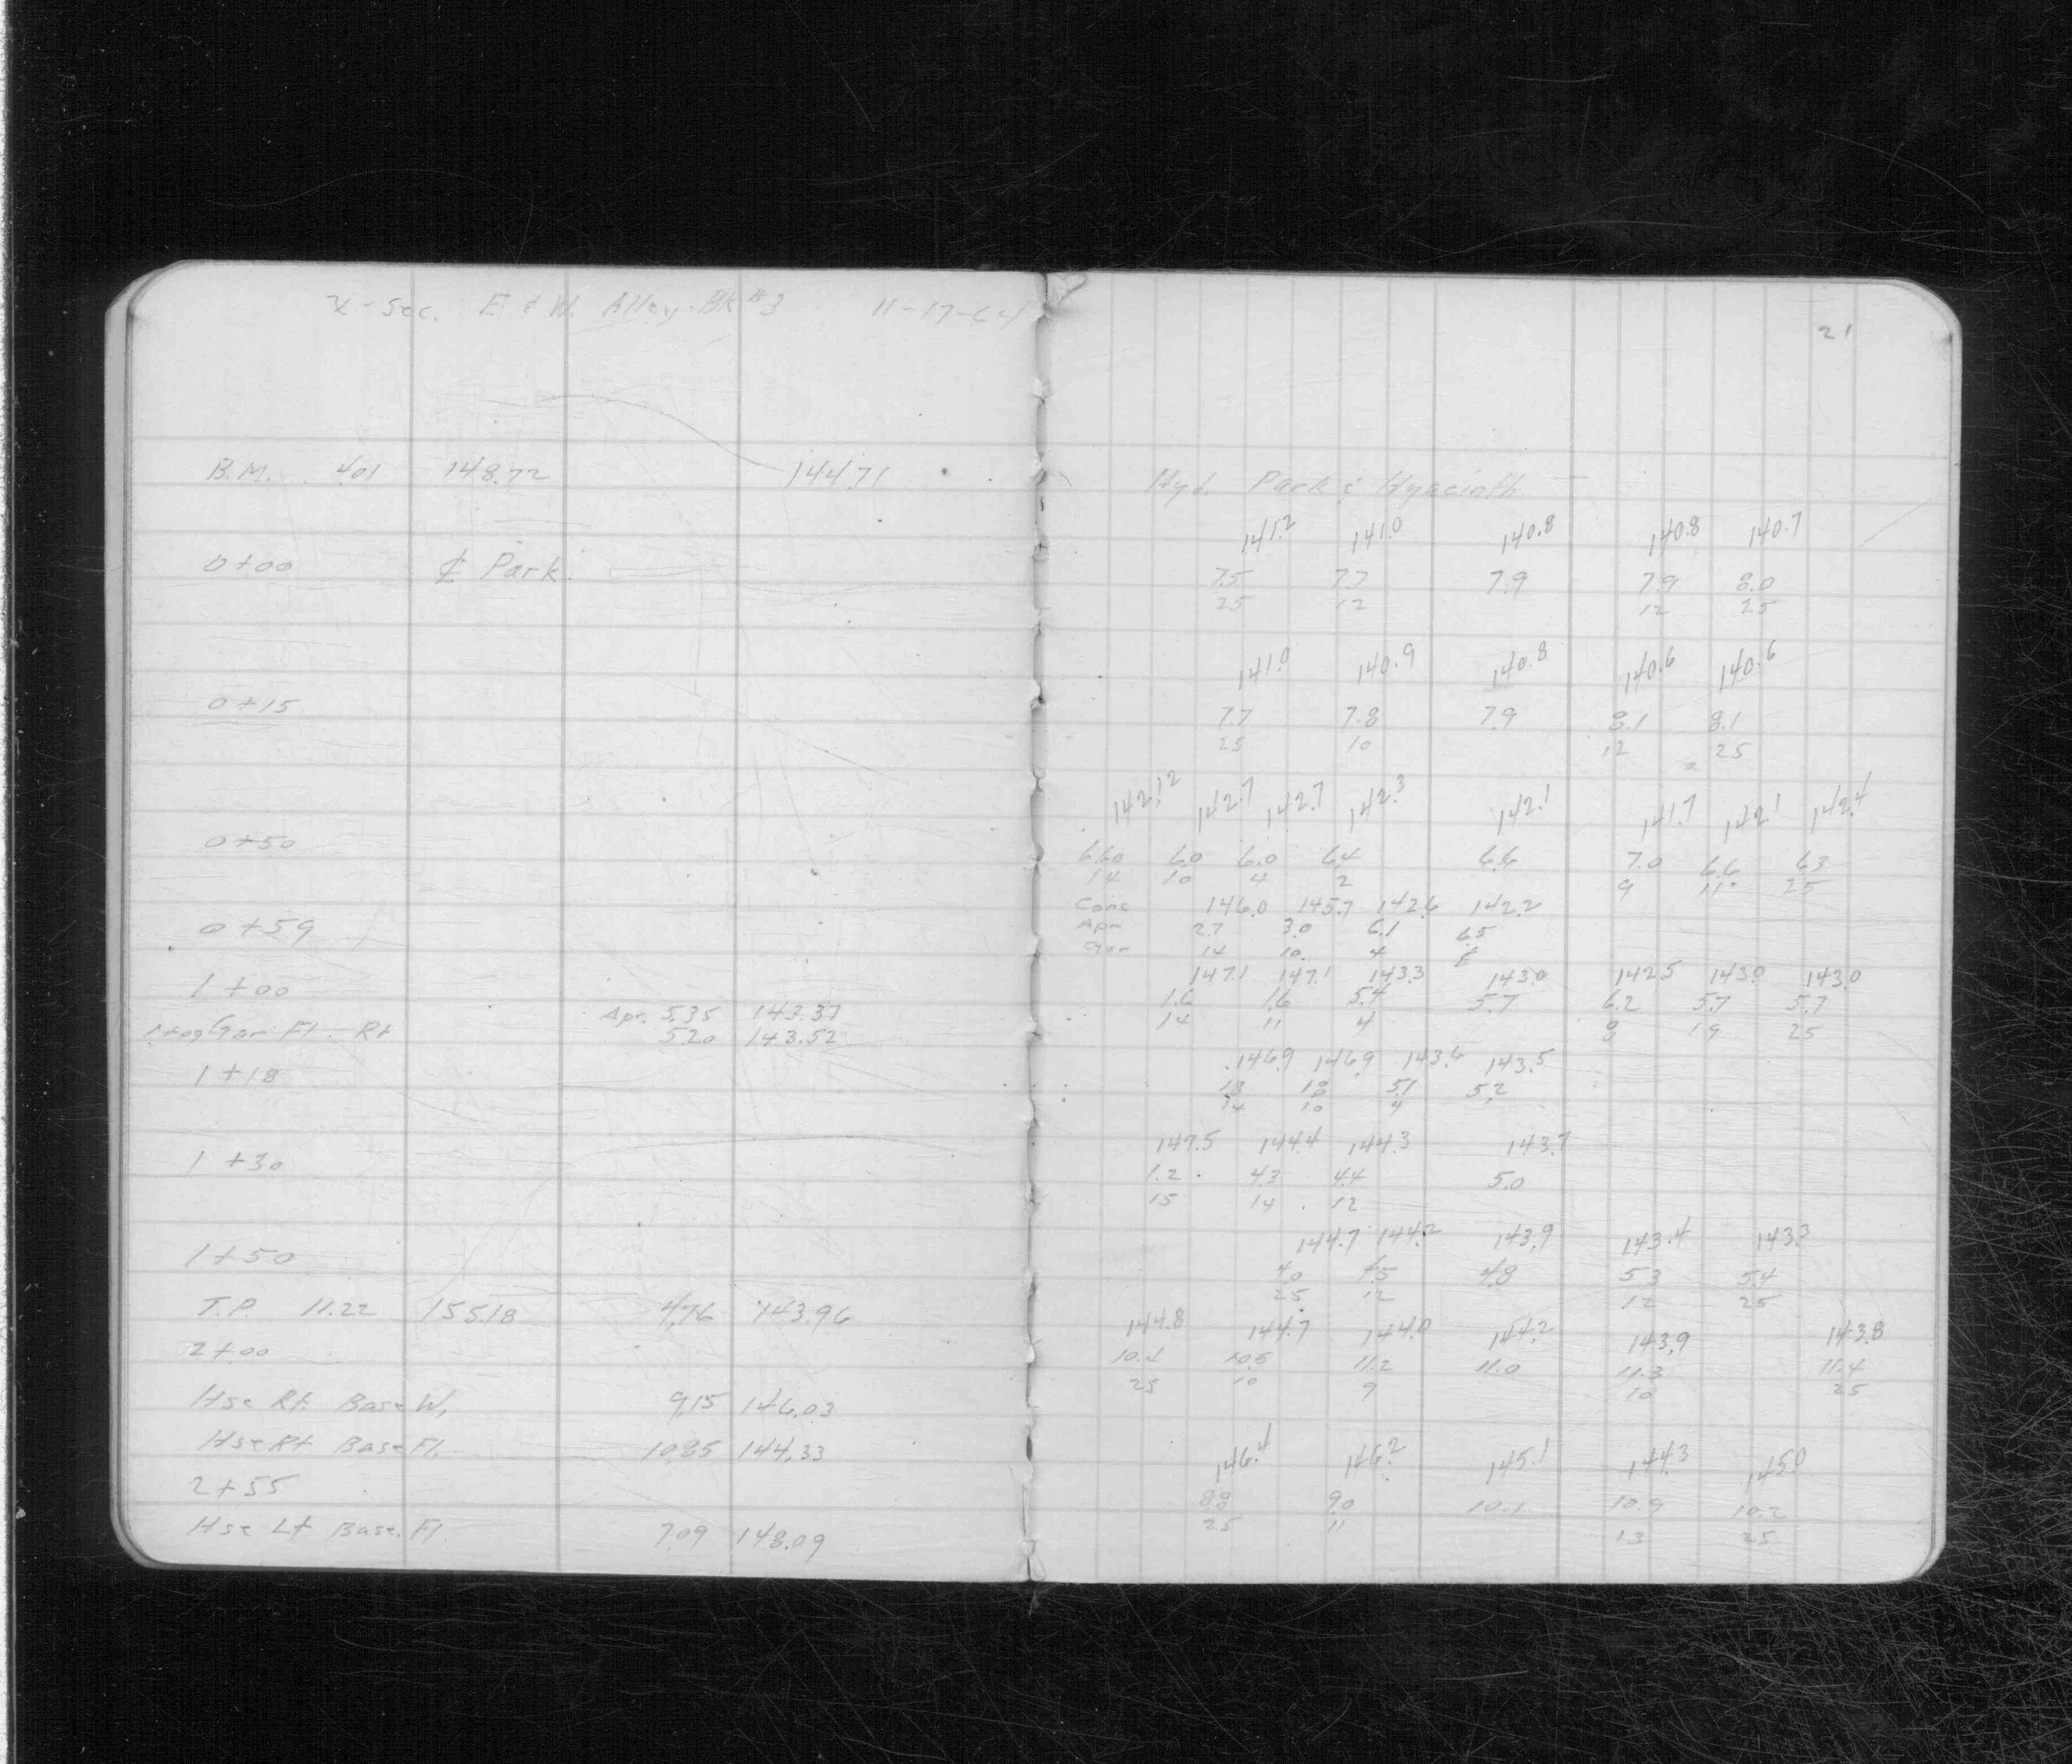 X-Sec. E & W. Alley, Blk #3 11-17-64
B.M. 4.01 148.72 144.71
0+00 ℄ Park
0+15
0+50
0+59
1+00
Apr. 5.35 143.37
Gar. Fl. - Rt 5.20 143.52
1+18
1+30
1+50
T.P. 11.22 155.18 4.76 143.96
2+00
Hse Rt. Base W. 9.15 146.03
Hse Rt Base Fl. 10.85 144.33
2+55
Hse Lt Base. Fl. 7.09 148.09
21
Hyd. Park & Hyacinth
141.2 141.0 140.8 140.8 140.7
7.5 7.7 7.9 7.9 8.0
25 12 12 25
141.0 140.9 140.8 140.6 140.6
7.7 7.8 7.9 8.1 8.1
25 10 12 25
142.12 142.7 142.7 142.3 142.1 141.7 142.1 142.4
6.60 6.0 6.0 6.4 6.6 7.0 6.6 6.3
14 10 4 2 9 11 25
Conc 146.0 145.7 142.6 142.2
Apr 2.7 3.0 6.1 6.5
Gar 14 10 4 ℄
147.1 147.1 143.3 143.0 142.5 143.0 143.0
1.6 1.6 5.4 5.7 6.2 5.7 5.7
14 11 4 8 19 25
146.9 146.9 143.6 143.5
1.8 1.8 5.1 5.2
14 10 4
147.5 144.4 144.3 143.7
1.2 4.3 4.4 5.0
15 14 12
144.7 144.2 143.9 143.4 143.3
4.0 4.5 4.8 5.3 5.4
25 12 12 25
144.8 144.7 144.0 144.2 143.9 143.8
10.4 10.5 11.2 11.0 11.3 11.4
25 10 9 10 25
146.4 146.2 145.1 144.3 145.0
8.8 9.0 10.1 10.9 10.2
25 11 13 25